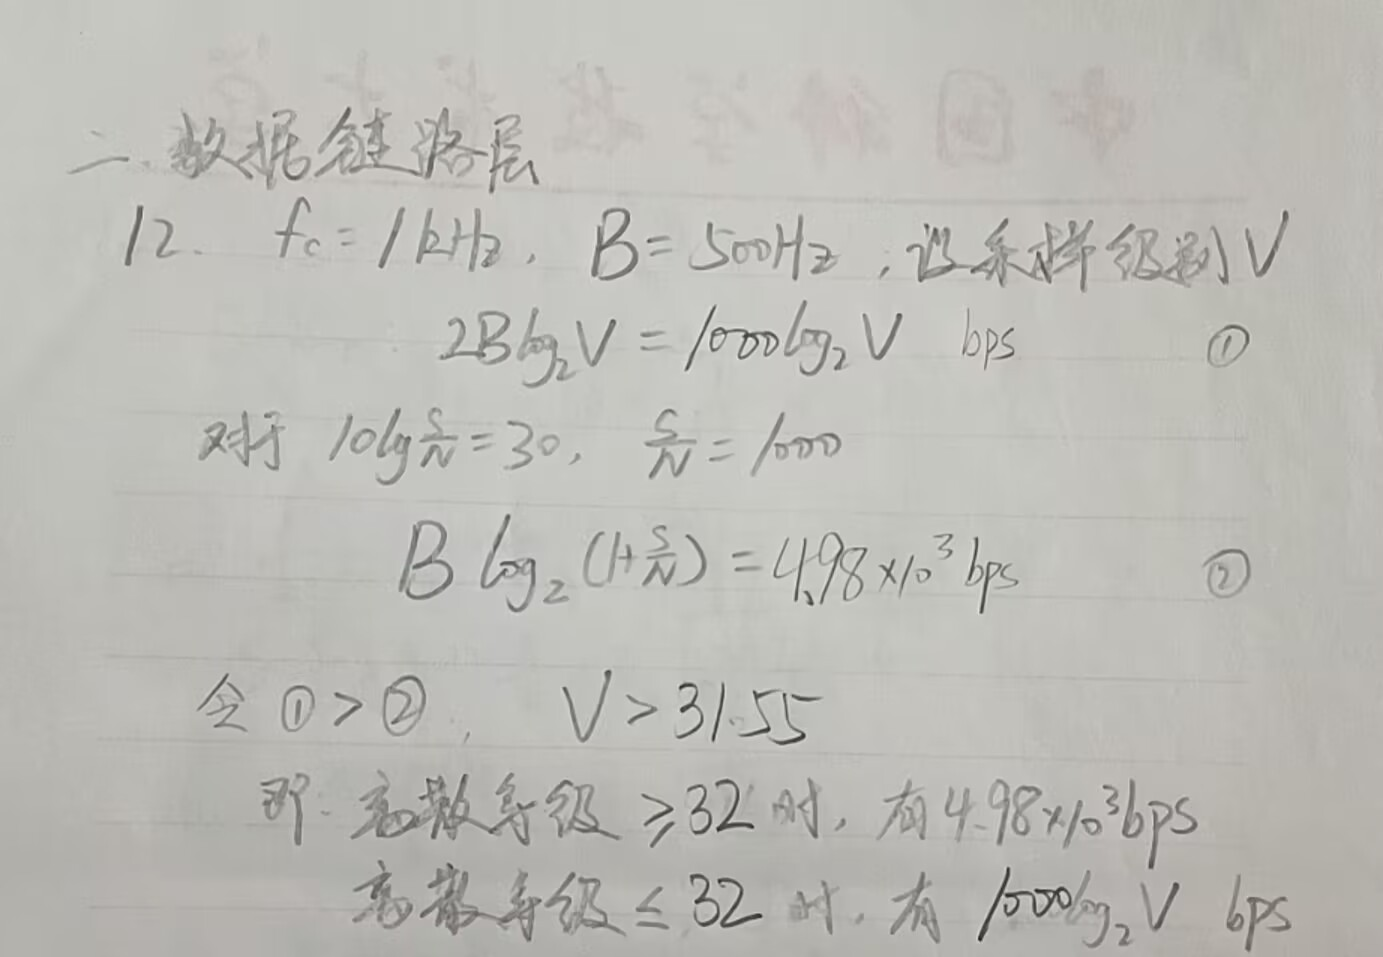 二、数据链路层
12. fc = 1kHz, B = 500Hz, 设采样级别V
2Blog₂V = 1000log₂V bps ①
对于 10lg S/N = 30, S/N = 1000
B log₂(1+S/N) = 4.98×10³ bps ②
令 ① > ②, V > 31.55
即: 离散等级 ≥ 32 时, 有 4.98×10³ bps
离散等级 ≤ 32 时, 有 1000log₂V bps